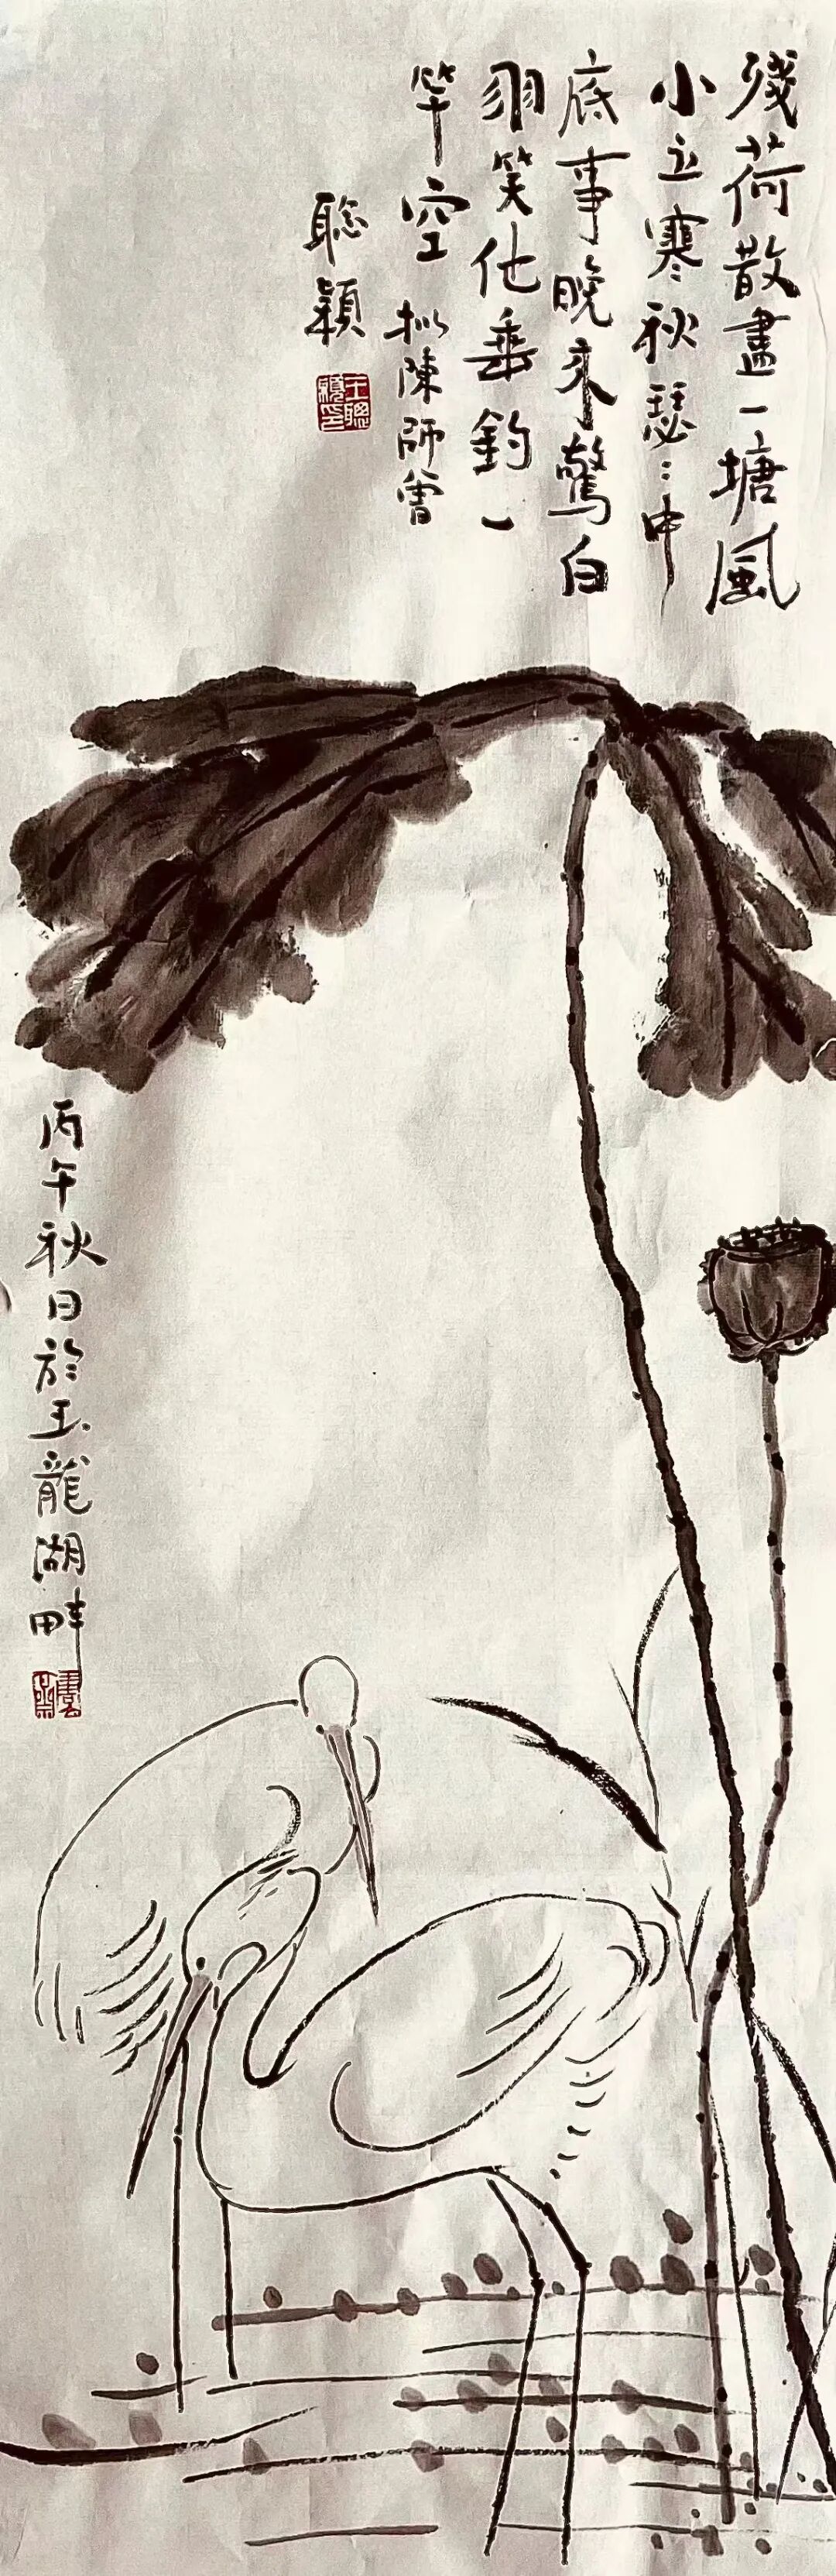 殘荷散盡一塘風
小立寒秋瑟〻中
底事晚來驚白
羽笑他垂釣一
竿空 擬陳師曾
聡穎
王聰穎印
丙午秋日於玉龍湖畔